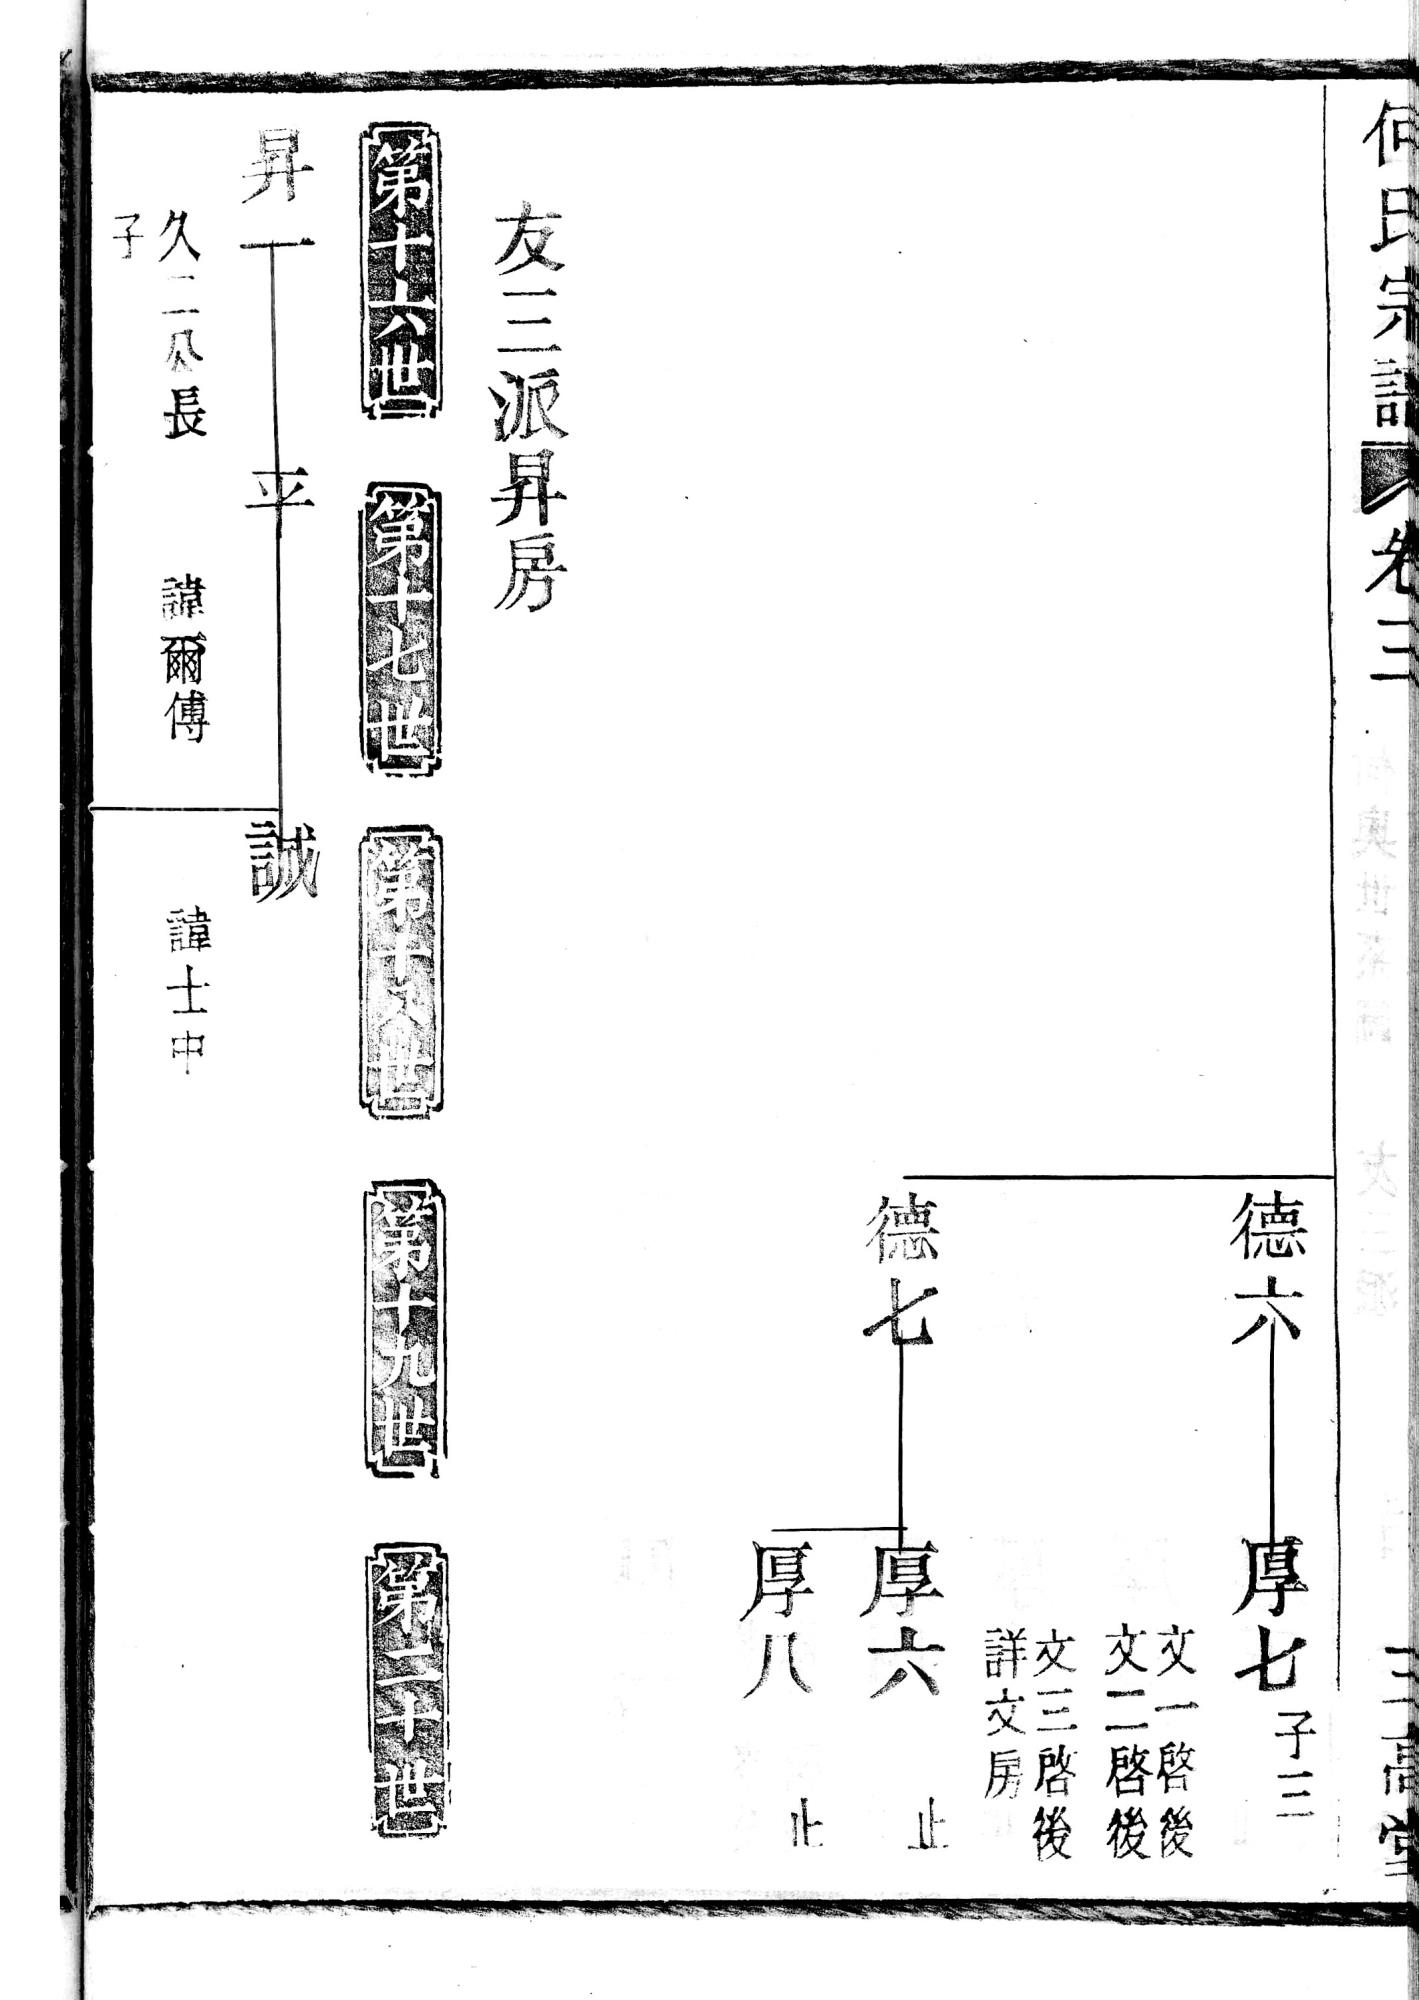 何氏宗譜 卷三
三高堂
德六
厚七
子三
文一啓後
文二啓後
文三啓後
詳文房
德七
厚六
止
厚八
止
友三派昇房
第十六世
第十七世
第十八世
第十九世
第二十世
昇一
平
誠
久二公長
子
諱爾傅
諱士中